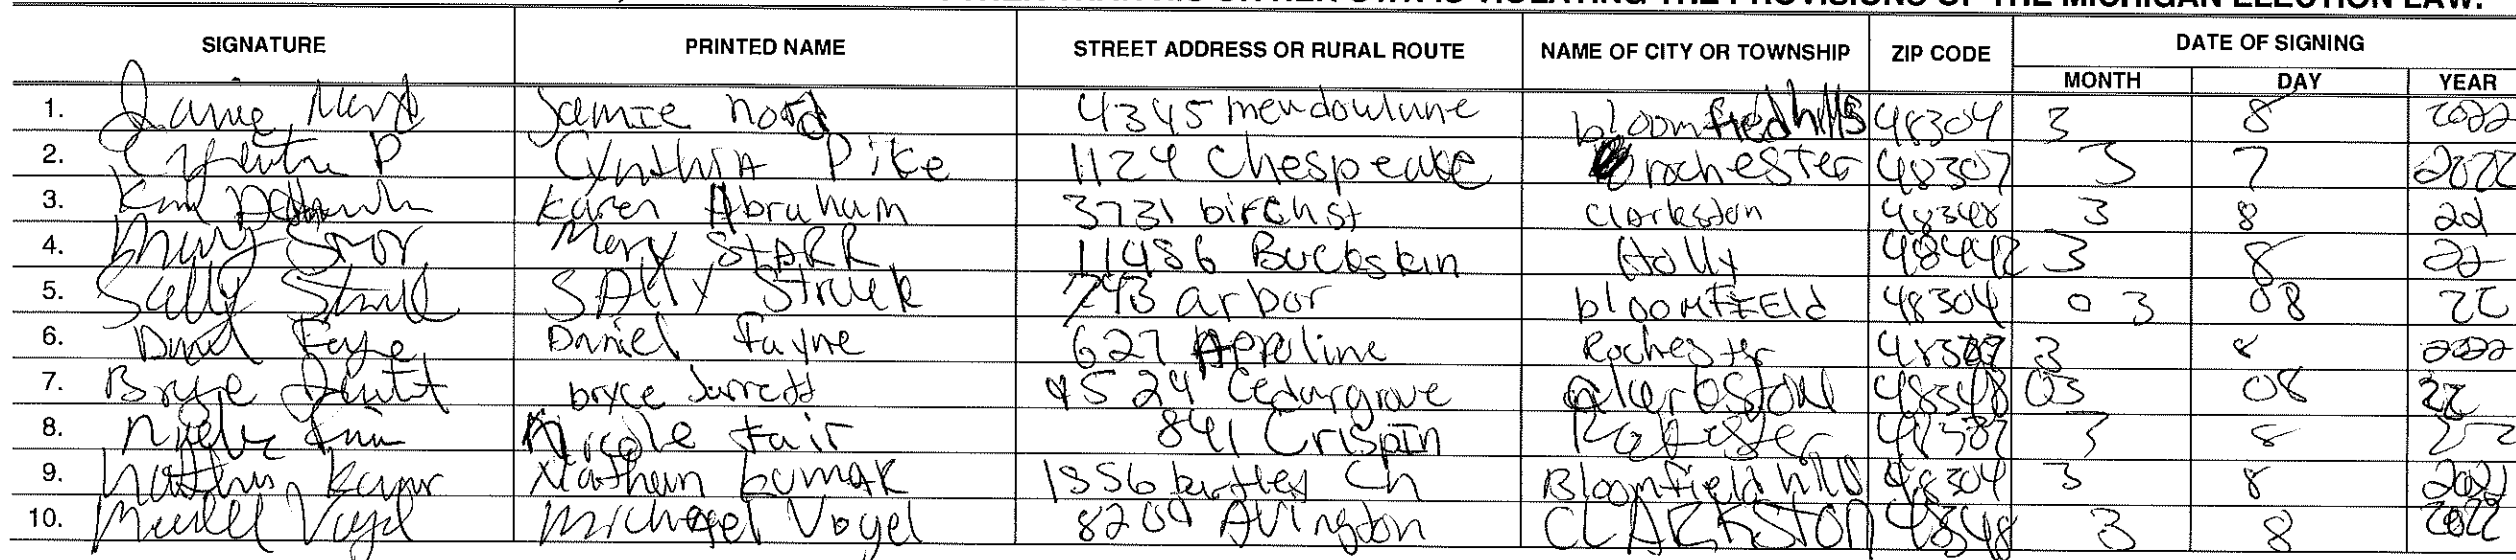 IS VIOLATING THE PROVISIONS OF THE MICHIGAN ELECTION LAW.
SIGNATURE PRINTED NAME STREET ADDRESS OR RURAL ROUTE NAME OF CITY OR TOWNSHIP ZIP CODE DATE OF SIGNING
MONTH DAY YEAR
1. Jamie Nord Jamie nord 4345 meadowlane bloomfiedhills 48304 3 8 2022
2. Cynthia P Cynthia Pike 1124 Chespeake rochester 48307 3 7 2022
3. Karen Abraham 3731 birch st Clarkston 48348 3 8 22
4. Mary Starr Mary StARR 11486 Buckskin Holly 48442 3 8 22
5. Sally Struck SAlly Struck 743 arbor bloomfield 48304 03 08 22
6. Daniel Fayne Daniel Fayne 627 Rochester 3 8 2022
7. Bryce Jarrett bryce Jarrett 4524 Cedargrove Clarkston 48348 03 08 22
8. Nicole Fair Nicole Fair 841 Crispin 3 8 22
9. Nathan Kumar Nathan kumar Bloomfield hills 48304 3 8
10. Michael Vogel Michael Vogel Avington CLARKSTON 48348 3 8 2022